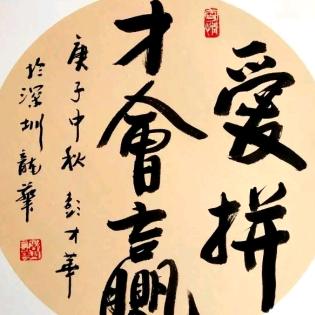 愛拼
才會贏
庚子中秋彭才華
於深圳龍華